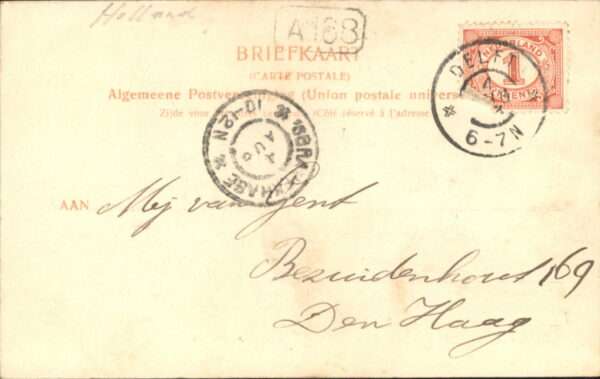 Holland
A168
BRIEFKAART
(CARTE POSTALE)
Algemeene Postvereeniging (Union postale universelle)
Zijde voor (Côté réservé à l'adresse)
NEDERLAND
1
CENT
DELFT
6-7N
'SGRAVENHAGE
10-12N
AUG
AAN Mej van Gent
Bezuidenhout 169
Den Haag